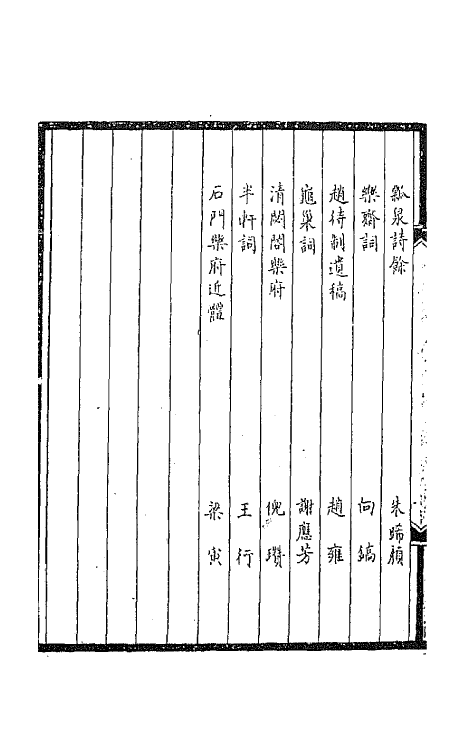 瓢泉詩餘　朱晞顏
樂齋詞　向鎬
趙待制遺稿　趙雍
龜巢詞　謝應芳
清閟閣樂府　倪瓚
半軒詞　王行
石門樂府近體　梁寅